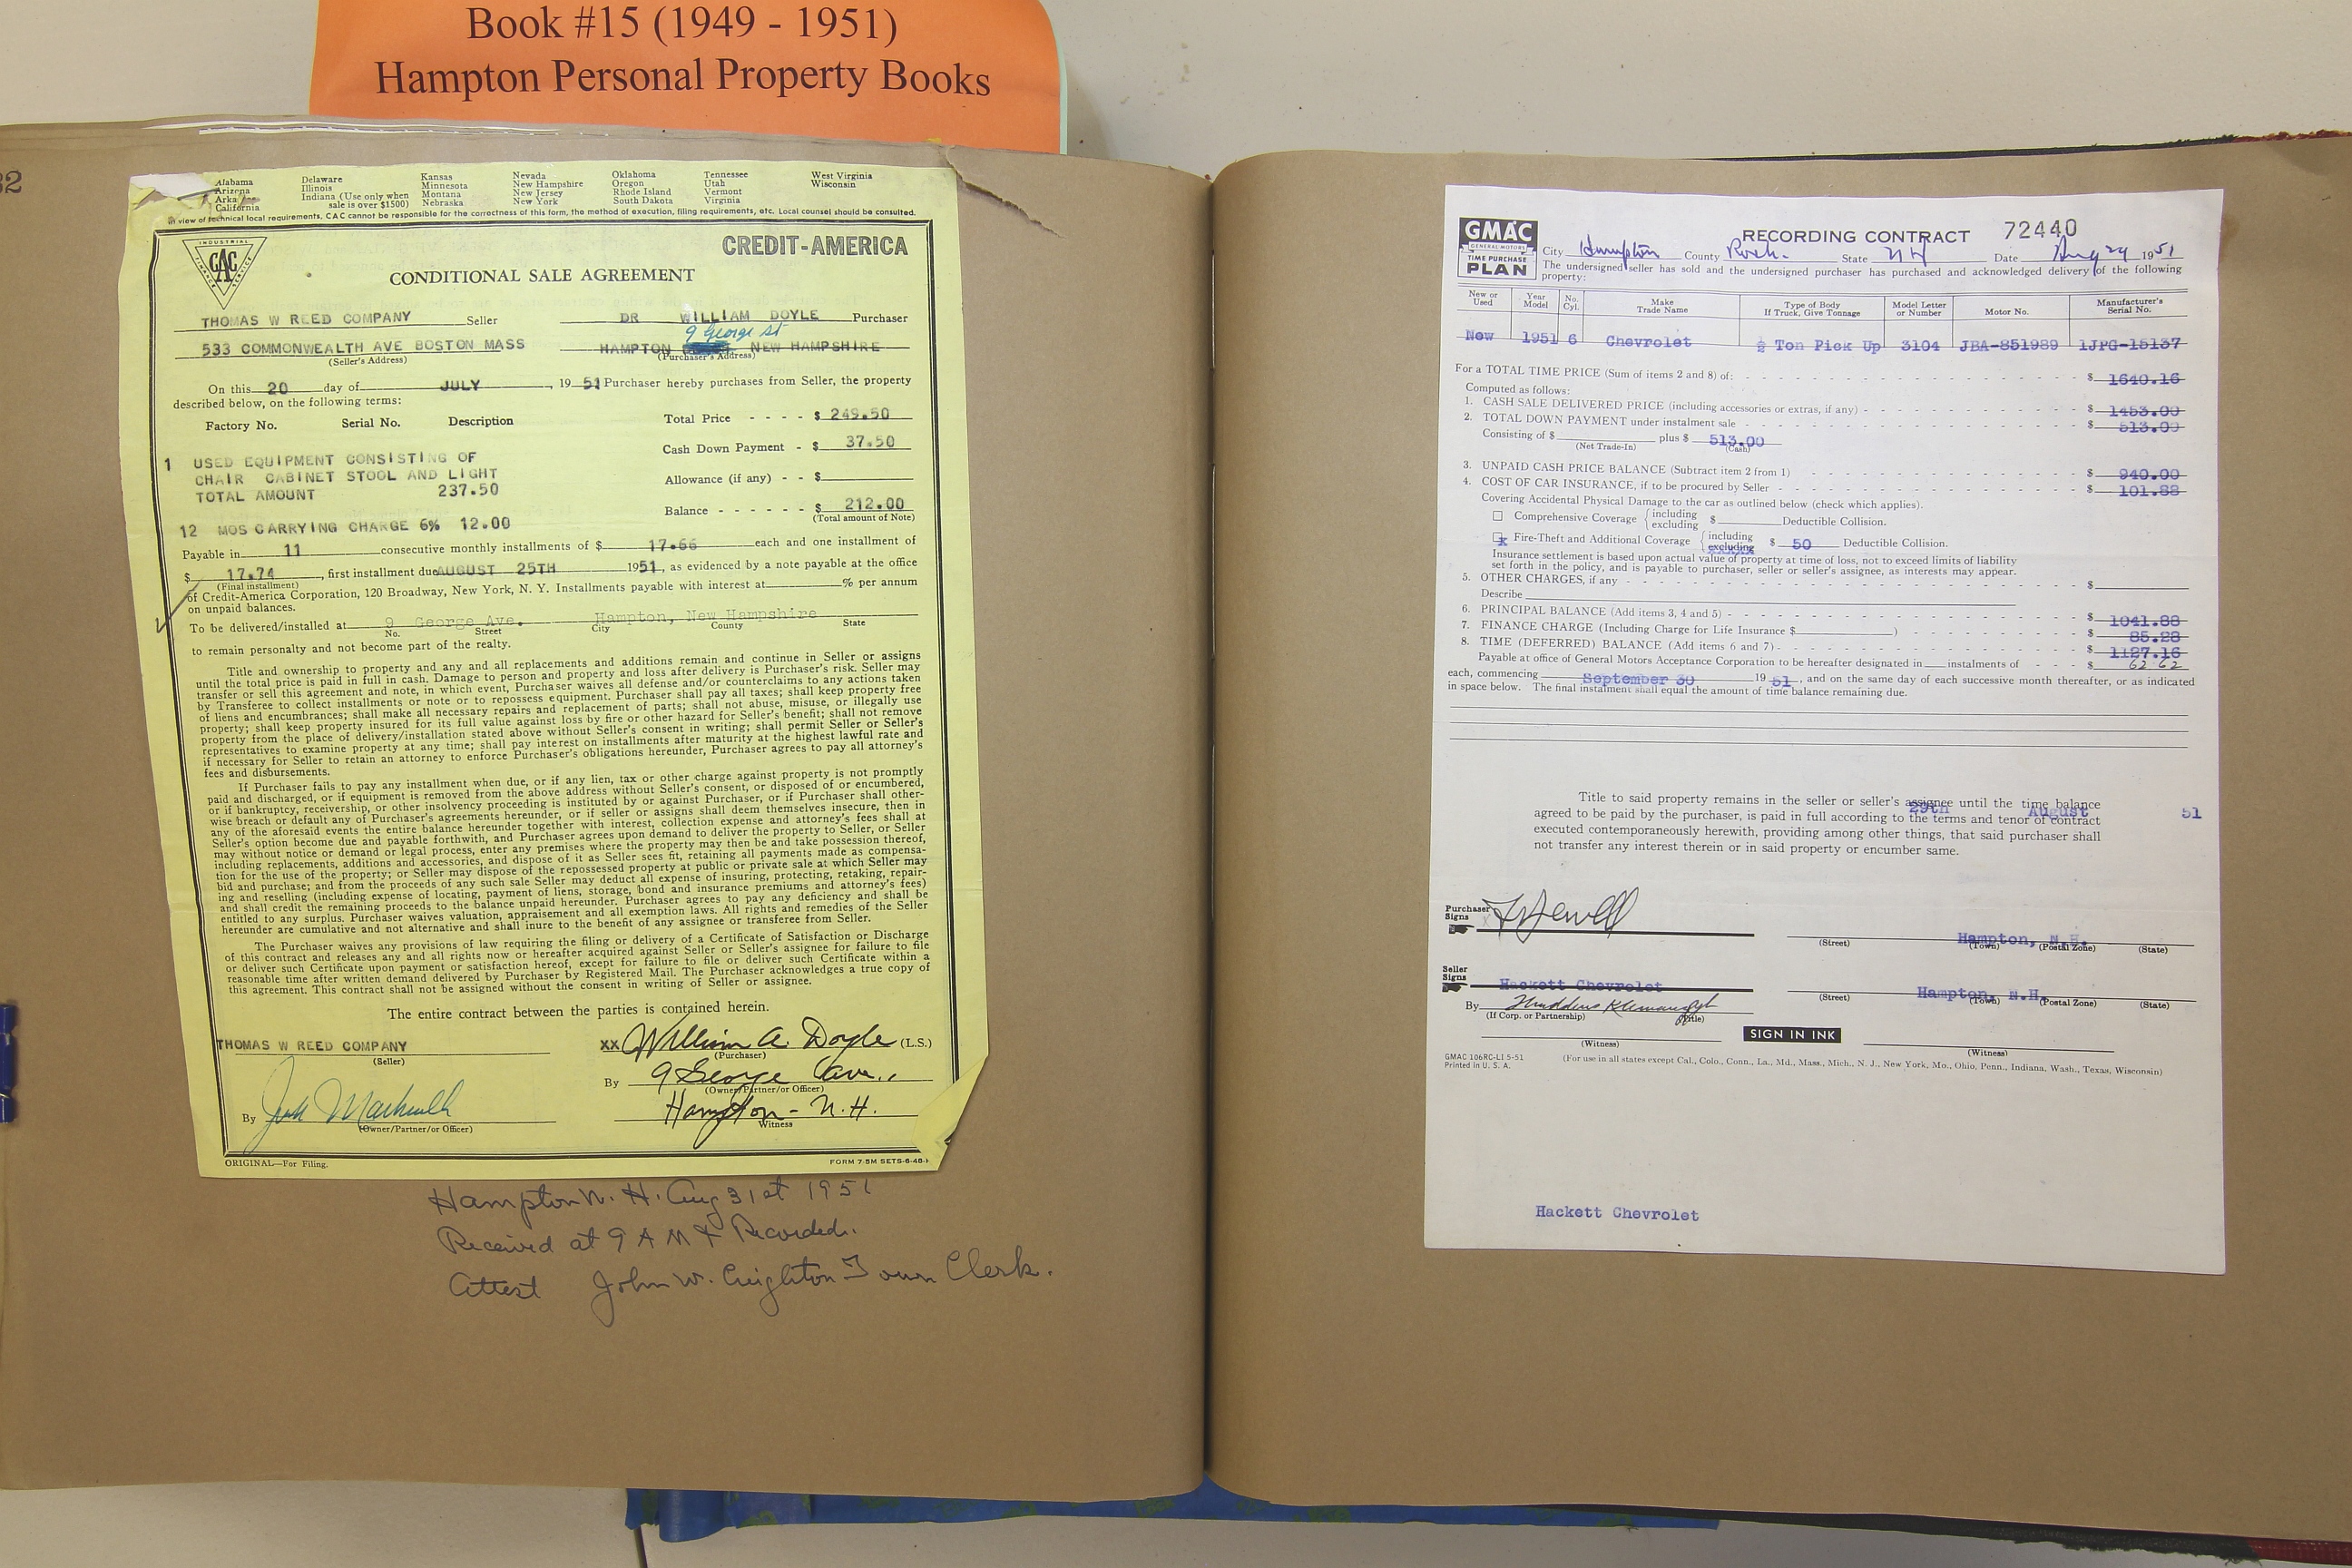 Book #15 (1949 - 1951)
Hampton Personal Property Books
32
Alabama Delaware Kansas Nevada Oklahoma Tennessee West Virginia
Arizona Illinois Minnesota New Hampshire Oregon Utah Wisconsin
Arka Indiana (Use only when Montana New Jersey Rhode Island Vermont
California sale is over $1500) Nebraska New York South Dakota Virginia
In view of technical local requirements, CAC cannot be responsible for the correctness of this form, the method of execution, filing requirements, etc. Local counsel should be consulted.
INDUSTRIAL
CAC
FINANCE SERVICE
CREDIT-AMERICA
CONDITIONAL SALE AGREEMENT
THOMAS W REED COMPANY Seller DR WILLIAM DOYLE Purchaser
9 George st
533 COMMONWEALTH AVE BOSTON MASS HAMPTON NEW HAMPSHIRE
(Seller's Address) (Purchaser's Address)
On this 20 day of JULY, 1951 Purchaser hereby purchases from Seller, the property
described below, on the following terms:
Factory No. Serial No. Description
Total Price - - - - $ 249.50
Cash Down Payment - $ 37.50
1 USED EQUIPMENT CONSISTING OF
CHAIR CABINET STOOL AND LIGHT
TOTAL AMOUNT 237.50
Allowance (if any) - - $
Balance - - - - - - $ 212.00
(Total amount of Note)
12 MOS CARRYING CHARGE 6% 12.00
Payable in 11 consecutive monthly installments of $ 17.66 each and one installment of
$ 17.74, first installment due AUGUST 25TH 1951, as evidenced by a note payable at the office
(Final installment)
of Credit-America Corporation, 120 Broadway, New York, N. Y. Installments payable with interest at % per annum
on unpaid balances.
To be delivered/installed at 9 George Ave. Hampton, New Hampshire
No. Street City County State
to remain personalty and not become part of the realty.
Title and ownership to property and any and all replacements and additions remain and continue in Seller or assigns
until the total price is paid in full in cash. Damage to person and property and loss after delivery is Purchaser's risk. Seller may
transfer or sell this agreement and note, in which event, Purchaser waives all defense and/or counterclaims to any actions taken
by Transferee to collect installments or note or to repossess equipment. Purchaser shall pay all taxes; shall keep property free
of liens and encumbrances; shall make all necessary repairs and replacement of parts; shall not abuse, misuse, or illegally use
property; shall keep property insured for its full value against loss by fire or other hazard for Seller's benefit; shall not remove
property from the place of delivery/installation stated above without Seller's consent in writing; shall permit Seller or Seller's
representatives to examine property at any time; shall pay interest on installments after maturity at the highest lawful rate and
if necessary for Seller to retain an attorney to enforce Purchaser's obligations hereunder, Purchaser agrees to pay all attorney's
fees and disbursements.
If Purchaser fails to pay any installment when due, or if any lien, tax or other charge against property is not promptly
paid and discharged, or if equipment is removed from the above address without Seller's consent, or disposed of or encumbered,
or if bankruptcy, receivership, or other insolvency proceeding is instituted by or against Purchaser, or if Purchaser shall other-
wise breach or default any of Purchaser's agreements hereunder, or if seller or assigns shall deem themselves insecure, then in
any of the aforesaid events the entire balance hereunder together with interest, collection expense and attorney's fees shall at
Seller's option become due and payable forthwith, and Purchaser agrees upon demand to deliver the property to Seller, or Seller
may without notice or demand or legal process, enter any premises where the property may then be and take possession thereof,
including replacements, additions and accessories, and dispose of it as Seller sees fit, retaining all payments made as compensa-
tion for the use of the property; or Seller may dispose of the repossessed property at public or private sale at which Seller may
bid and purchase; and from the proceeds of any such sale Seller may deduct all expense of insuring, protecting, retaking, repair-
ing and reselling (including expense of locating, payment of liens, storage, bond and insurance premiums and attorney's fees)
and shall credit the remaining proceeds to the balance unpaid hereunder. Purchaser agrees to pay any deficiency and shall be
entitled to any surplus. Purchaser waives valuation, appraisement and all exemption laws. All rights and remedies of the Seller
hereunder are cumulative and not alternative and shall inure to the benefit of any assignee or transferee from Seller.
The Purchaser waives any provisions of law requiring the filing or delivery of a Certificate of Satisfaction or Discharge
of this contract and releases any and all rights now or hereafter acquired against Seller or Seller's assignee for failure to file
or deliver such Certificate upon payment or satisfaction hereof, except for failure to file or deliver such Certificate within a
reasonable time after written demand delivered by Purchaser by Registered Mail. The Purchaser acknowledges a true copy of
this agreement. This contract shall not be assigned without the consent in writing of Seller or assignee.
The entire contract between the parties is contained herein.
THOMAS W REED COMPANY XX William A. Doyle (L.S.)
(Seller) (Purchaser)
By 9 George Ave.,
(Owner/Partner/or Officer)
By Hampton - N.H.
(Owner/Partner/or Officer) Witness
ORIGINAL—For Filing. FORM 7-5M SETS-6-48-
Hampton N. H. Aug 31st 1951
Received at 9 A M & Recorded.
Attest John W. Creighton Town Clerk.
GMAC
GENERAL MOTORS
TIME PURCHASE
PLAN
RECORDING CONTRACT 72440
City Hampton County Rock. State NH Date Aug 29 1951
The undersigned seller has sold and the undersigned purchaser has purchased and acknowledged delivery of the following
property:
New or Used Year Model No. Cyl. Make Trade Name Type of Body If Truck, Give Tonnage Model Letter or Number Motor No. Manufacturer's Serial No.
New 1951 6 Chevrolet ½ Ton Pick Up 3104 JBA-851989 1JPG-15137
For a TOTAL TIME PRICE (Sum of items 2 and 8) of: $ 1640.16
Computed as follows:
1. CASH SALE DELIVERED PRICE (including accessories or extras, if any) $ 1453.00
2. TOTAL DOWN PAYMENT under instalment sale $ 513.00
Consisting of $ plus $ 513.00
(Net Trade-In) (Cash)
3. UNPAID CASH PRICE BALANCE (Subtract item 2 from 1) $ 940.00
4. COST OF CAR INSURANCE, if to be procured by Seller $ 101.88
Covering Accidental Physical Damage to the car as outlined below (check which applies).
Comprehensive Coverage {including excluding $ Deductible Collision.
x Fire-Theft and Additional Coverage {including excluding $ 50 Deductible Collision.
Insurance settlement is based upon actual value of property at time of loss, not to exceed limits of liability
set forth in the policy, and is payable to purchaser, seller or seller's assignee, as interests may appear.
5. OTHER CHARGES, if any $
Describe
6. PRINCIPAL BALANCE (Add items 3, 4 and 5) $ 1041.88
7. FINANCE CHARGE (Including Charge for Life Insurance $ ) $ 85.28
8. TIME (DEFERRED) BALANCE (Add items 6 and 7) $ 1127.16
Payable at office of General Motors Acceptance Corporation to be hereafter designated in instalments of $ 62.62
each, commencing September 30 1951, and on the same day of each successive month thereafter, or as indicated
in space below. The final instalment shall equal the amount of time balance remaining due.
Title to said property remains in the seller or seller's assignee until the time balance
29th August 51
agreed to be paid by the purchaser, is paid in full according to the terms and tenor of contract
executed contemporaneously herewith, providing among other things, that said purchaser shall
not transfer any interest therein or in said property or encumber same.
Purchaser Signs Hampton, N.H.
(Street) (Town) (Postal Zone) (State)
Seller Signs Hackett Chevrolet Hampton, N.H.
By (Street) (Town) (Postal Zone) (State)
(If Corp. or Partnership) (Title)
SIGN IN INK
(Witness) (Witness)
GMAC 106RC-LI 5-51
Printed in U. S. A.
(For use in all states except Cal., Colo., Conn., La., Md., Mass., Mich., N. J., New York, Mo., Ohio, Penn., Indiana, Wash., Texas, Wisconsin)
Hackett Chevrolet